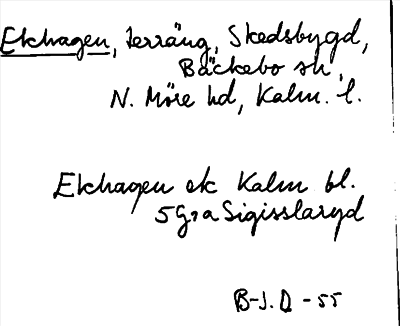 Ekhagen, terräng, Skedsbygd,
Bäckebo sn,
N. Möre hd, Kalm. l.
Ekhagen ek Kalm bl.
5 G7a Sigisslaryd
B-J.D -55